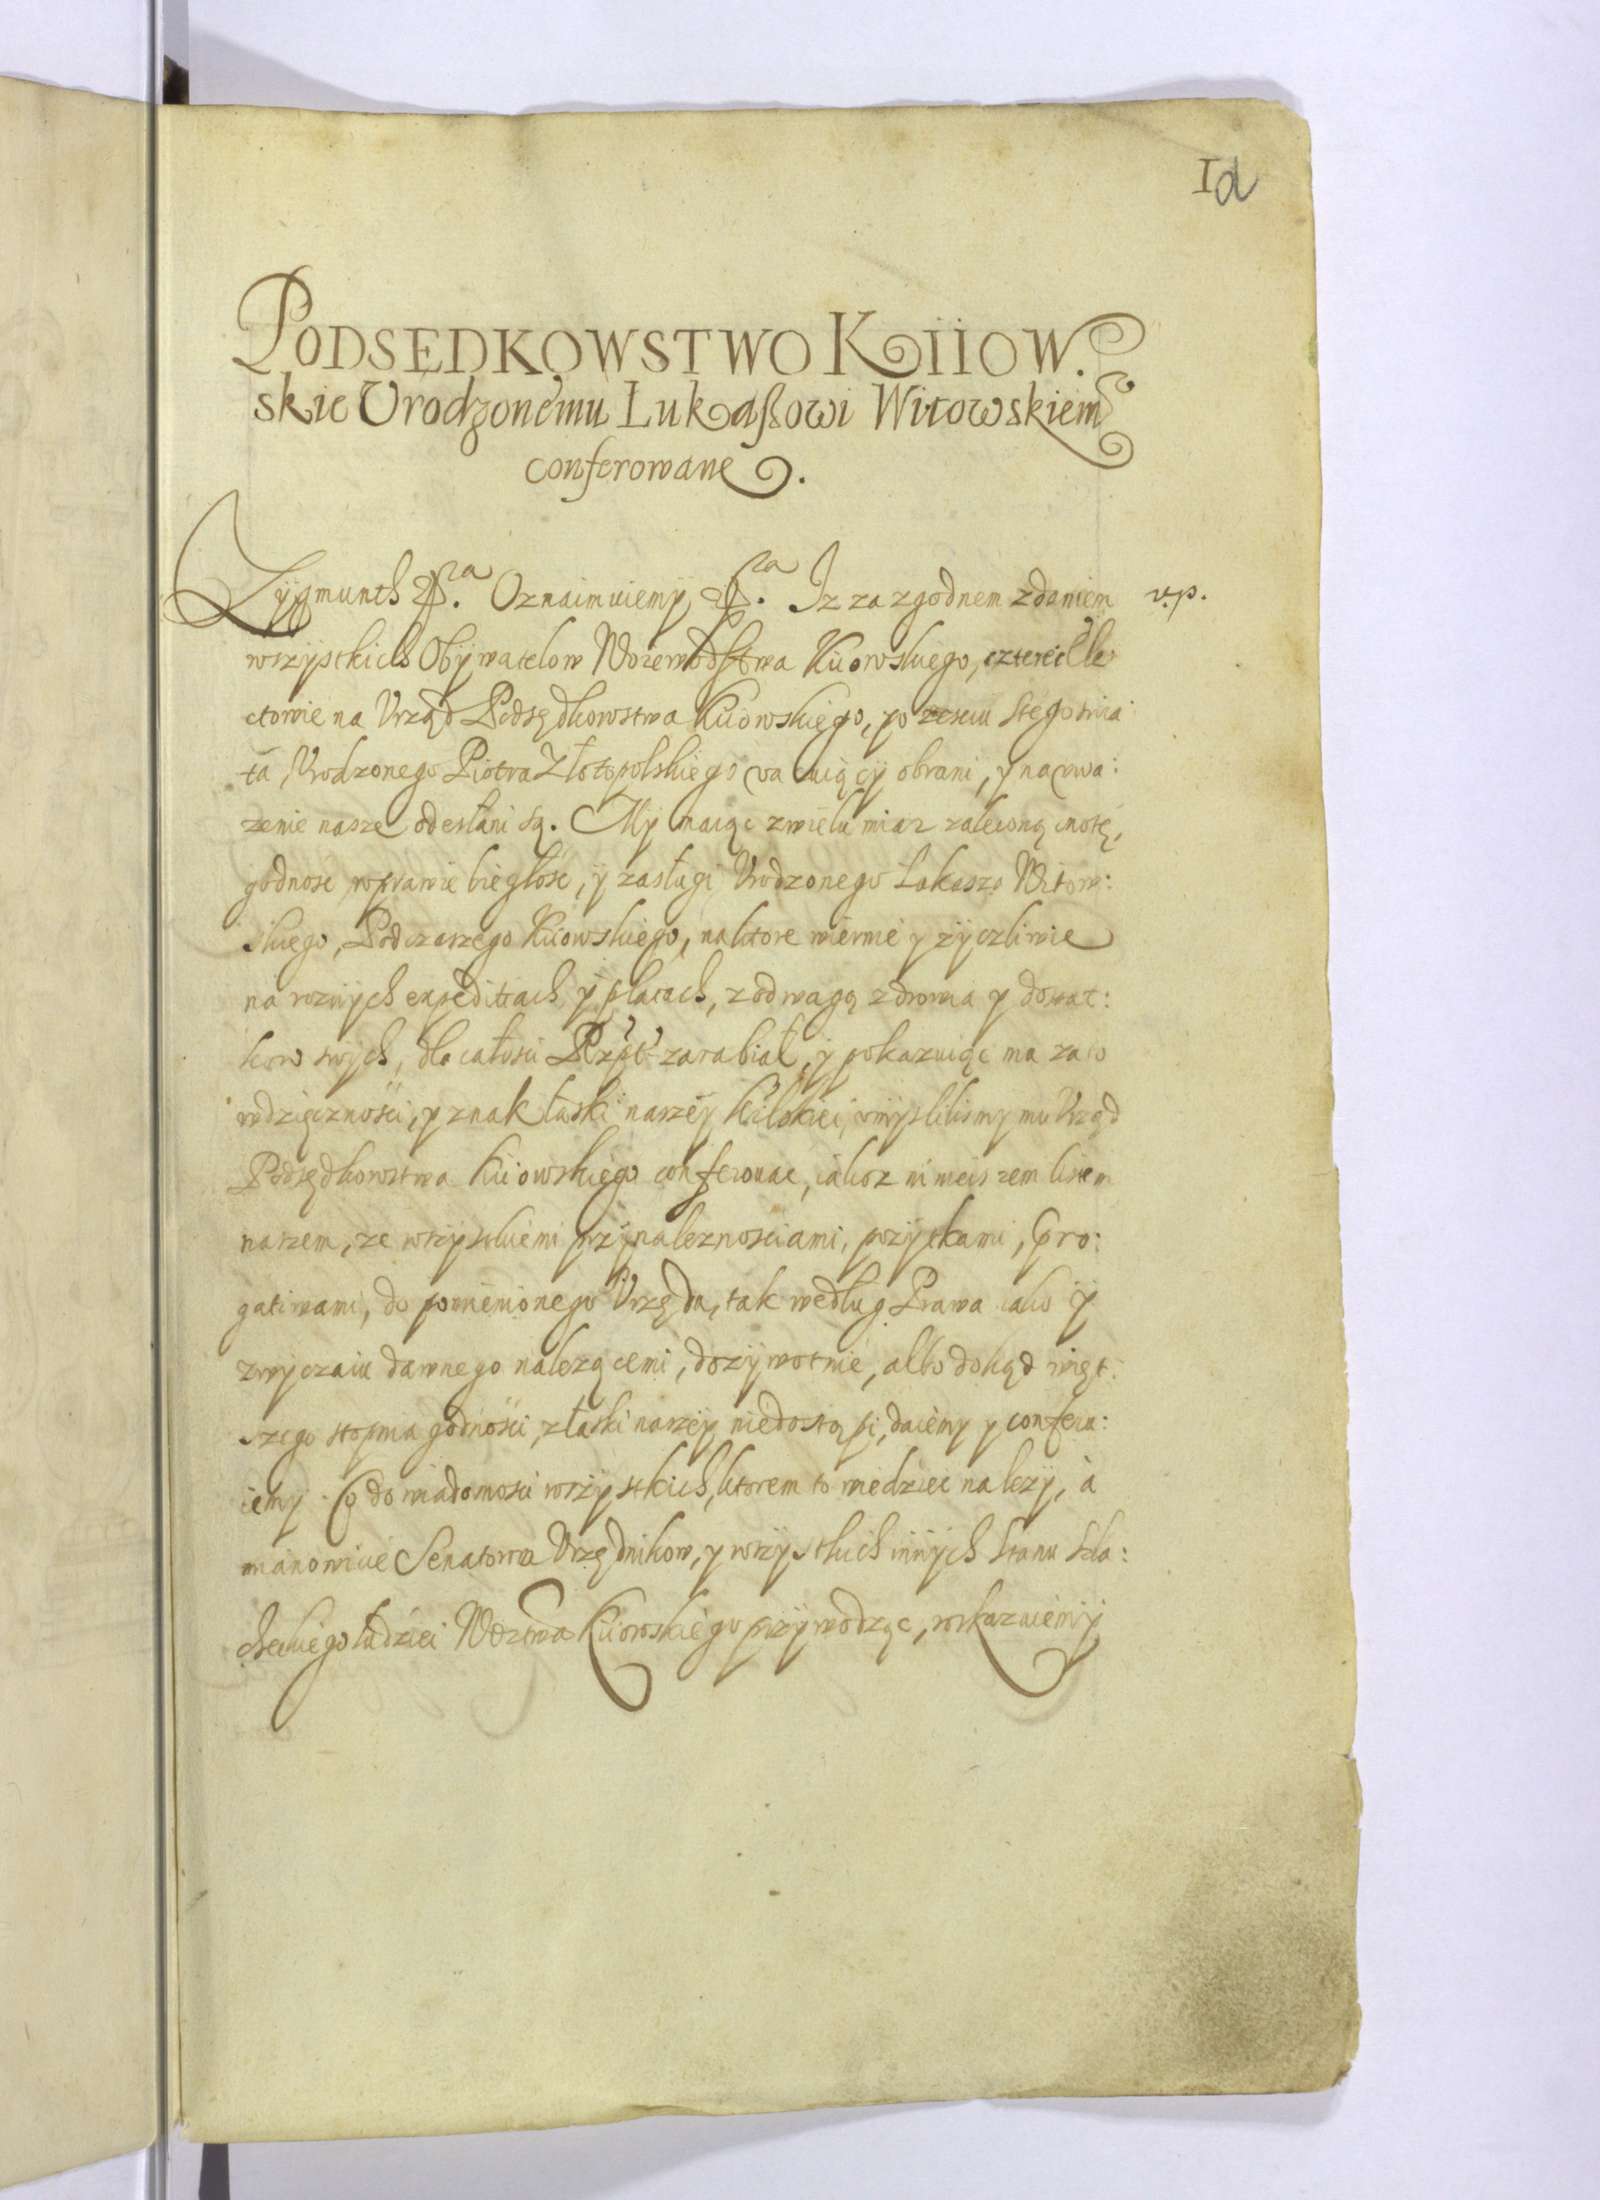 1d
PODSEDKOWSTWO KIIOW.
skie Vrodzonemu Lukaßowi Witowskiem
conferowane.
Zygmunth Oznaimuiemy Iz za zgodnem zdaniem v.p.
wszystkich Obÿwatelow Woiewodstwa Kiiowskiego, czterei Ele
ctowie na Vrząd Podsędkowstwa Kiiowskiego, po zesciu stego swia
ta, Vrodzonego Piotra Złotopolskiego vacuiącÿ obrani, y na vwa:
zenie nasze odesłani są. Mÿ maiąc zwielu miar zaleconą cnotę,
godnosc, wprawie biegłosc, ÿ zasługi Vrodzonego Łukasza Witow:
skiego, Podczaszego Kiiowskiego, naktore wiernie y zÿczliwie
na roznÿch expeditiach ÿ placach, z odwagą zdrowia y dostat:
kow swÿch, dla całosci Rzpt zarabiał, ÿ pokazuiąc mu zato
wdzięcznosci, y znak łaski naszeÿ Krolskiei, vmÿslilismy mu Vrząd
Podsędkowstwa Kiiowskiego conferowac, iakoz ninieiszem listem
naszem, ze wszÿstkiemi przÿnaleznosciami, pozÿtkami, Prro:
gatiwami, do pomienionego Vrzędu, tak według Prawa iako ÿ
zwÿczaiu dawnego nalezącemi, dozÿwotnie, albo dokąd więt:
szego stopnia godnosci, z łaski naszeÿ niedostąpi, daiemy y conferu:
iemy. Co do wiadomosci wszÿstkich, ktorem to wiedziec nalezÿ, a
mianowicie Senatorow Vrzędnikow, y wszÿstkich innÿch stanu szla:
checkiego ludziei Wdztwa Kiiowskiego przÿwodząc, roskazuiemÿ